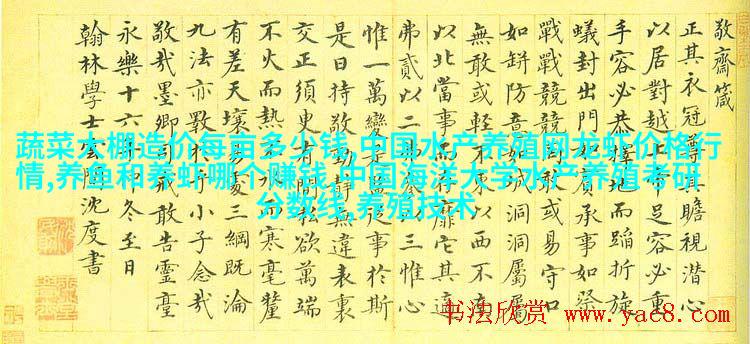 敬齋箴
正其衣冠尊其瞻視潛心
以居對越上帝足容必重
手容必恭擇地而蹈折旋
蟻封出門如賓承事如祭
戰戰兢兢罔敢或易守口
如缾防意如城洞洞屬屬
無敢或輕不東以西不南
以北當事而存靡它其適
弗貳以二弗叁以三惟心
惟一萬變是監從事於斯
是日持敬動靜無違表裏
交正須臾有間私欲萬端
不火而熱不冰而寒毫釐
有差天壤易處三綱既淪
九法亦斁於乎小子念哉
敬哉墨卿司戒敢告靈臺
永樂十六年仲冬至日
翰林學士雲間沈度書
蔬菜大棚造价每亩多少钱,中国水产养殖网龙虾价格行
情,养鱼和养虾哪个赚钱,中国海洋大学水产养殖考研
分数线,养殖技术
书法欣赏
www.yac8.com